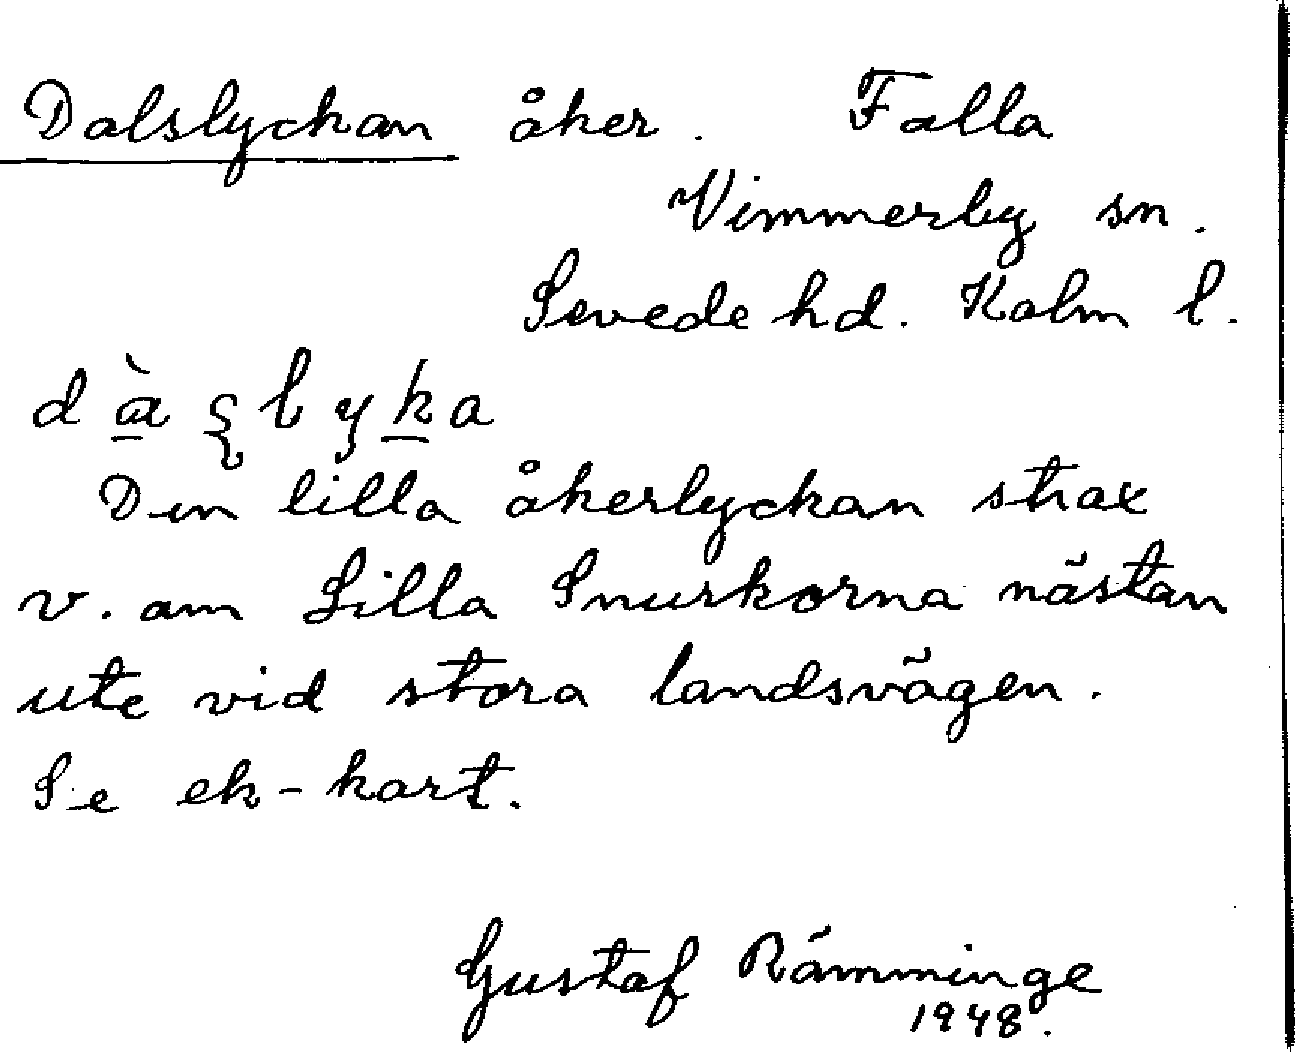 Dalslyckan åker. Falla
Vimmerby sn.
Sevede hd. Kalm l.
dàʂlyka
Den lilla åkerlyckan strax
v. om Lilla Snurkorna nästan
ute vid stora landsvägen.
Se ek-kart.
Gustaf Rämminge
1948.